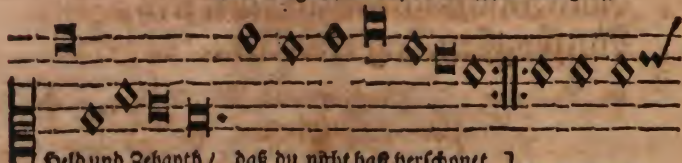 Held und Jehanth / daß du nicht hast verschonet